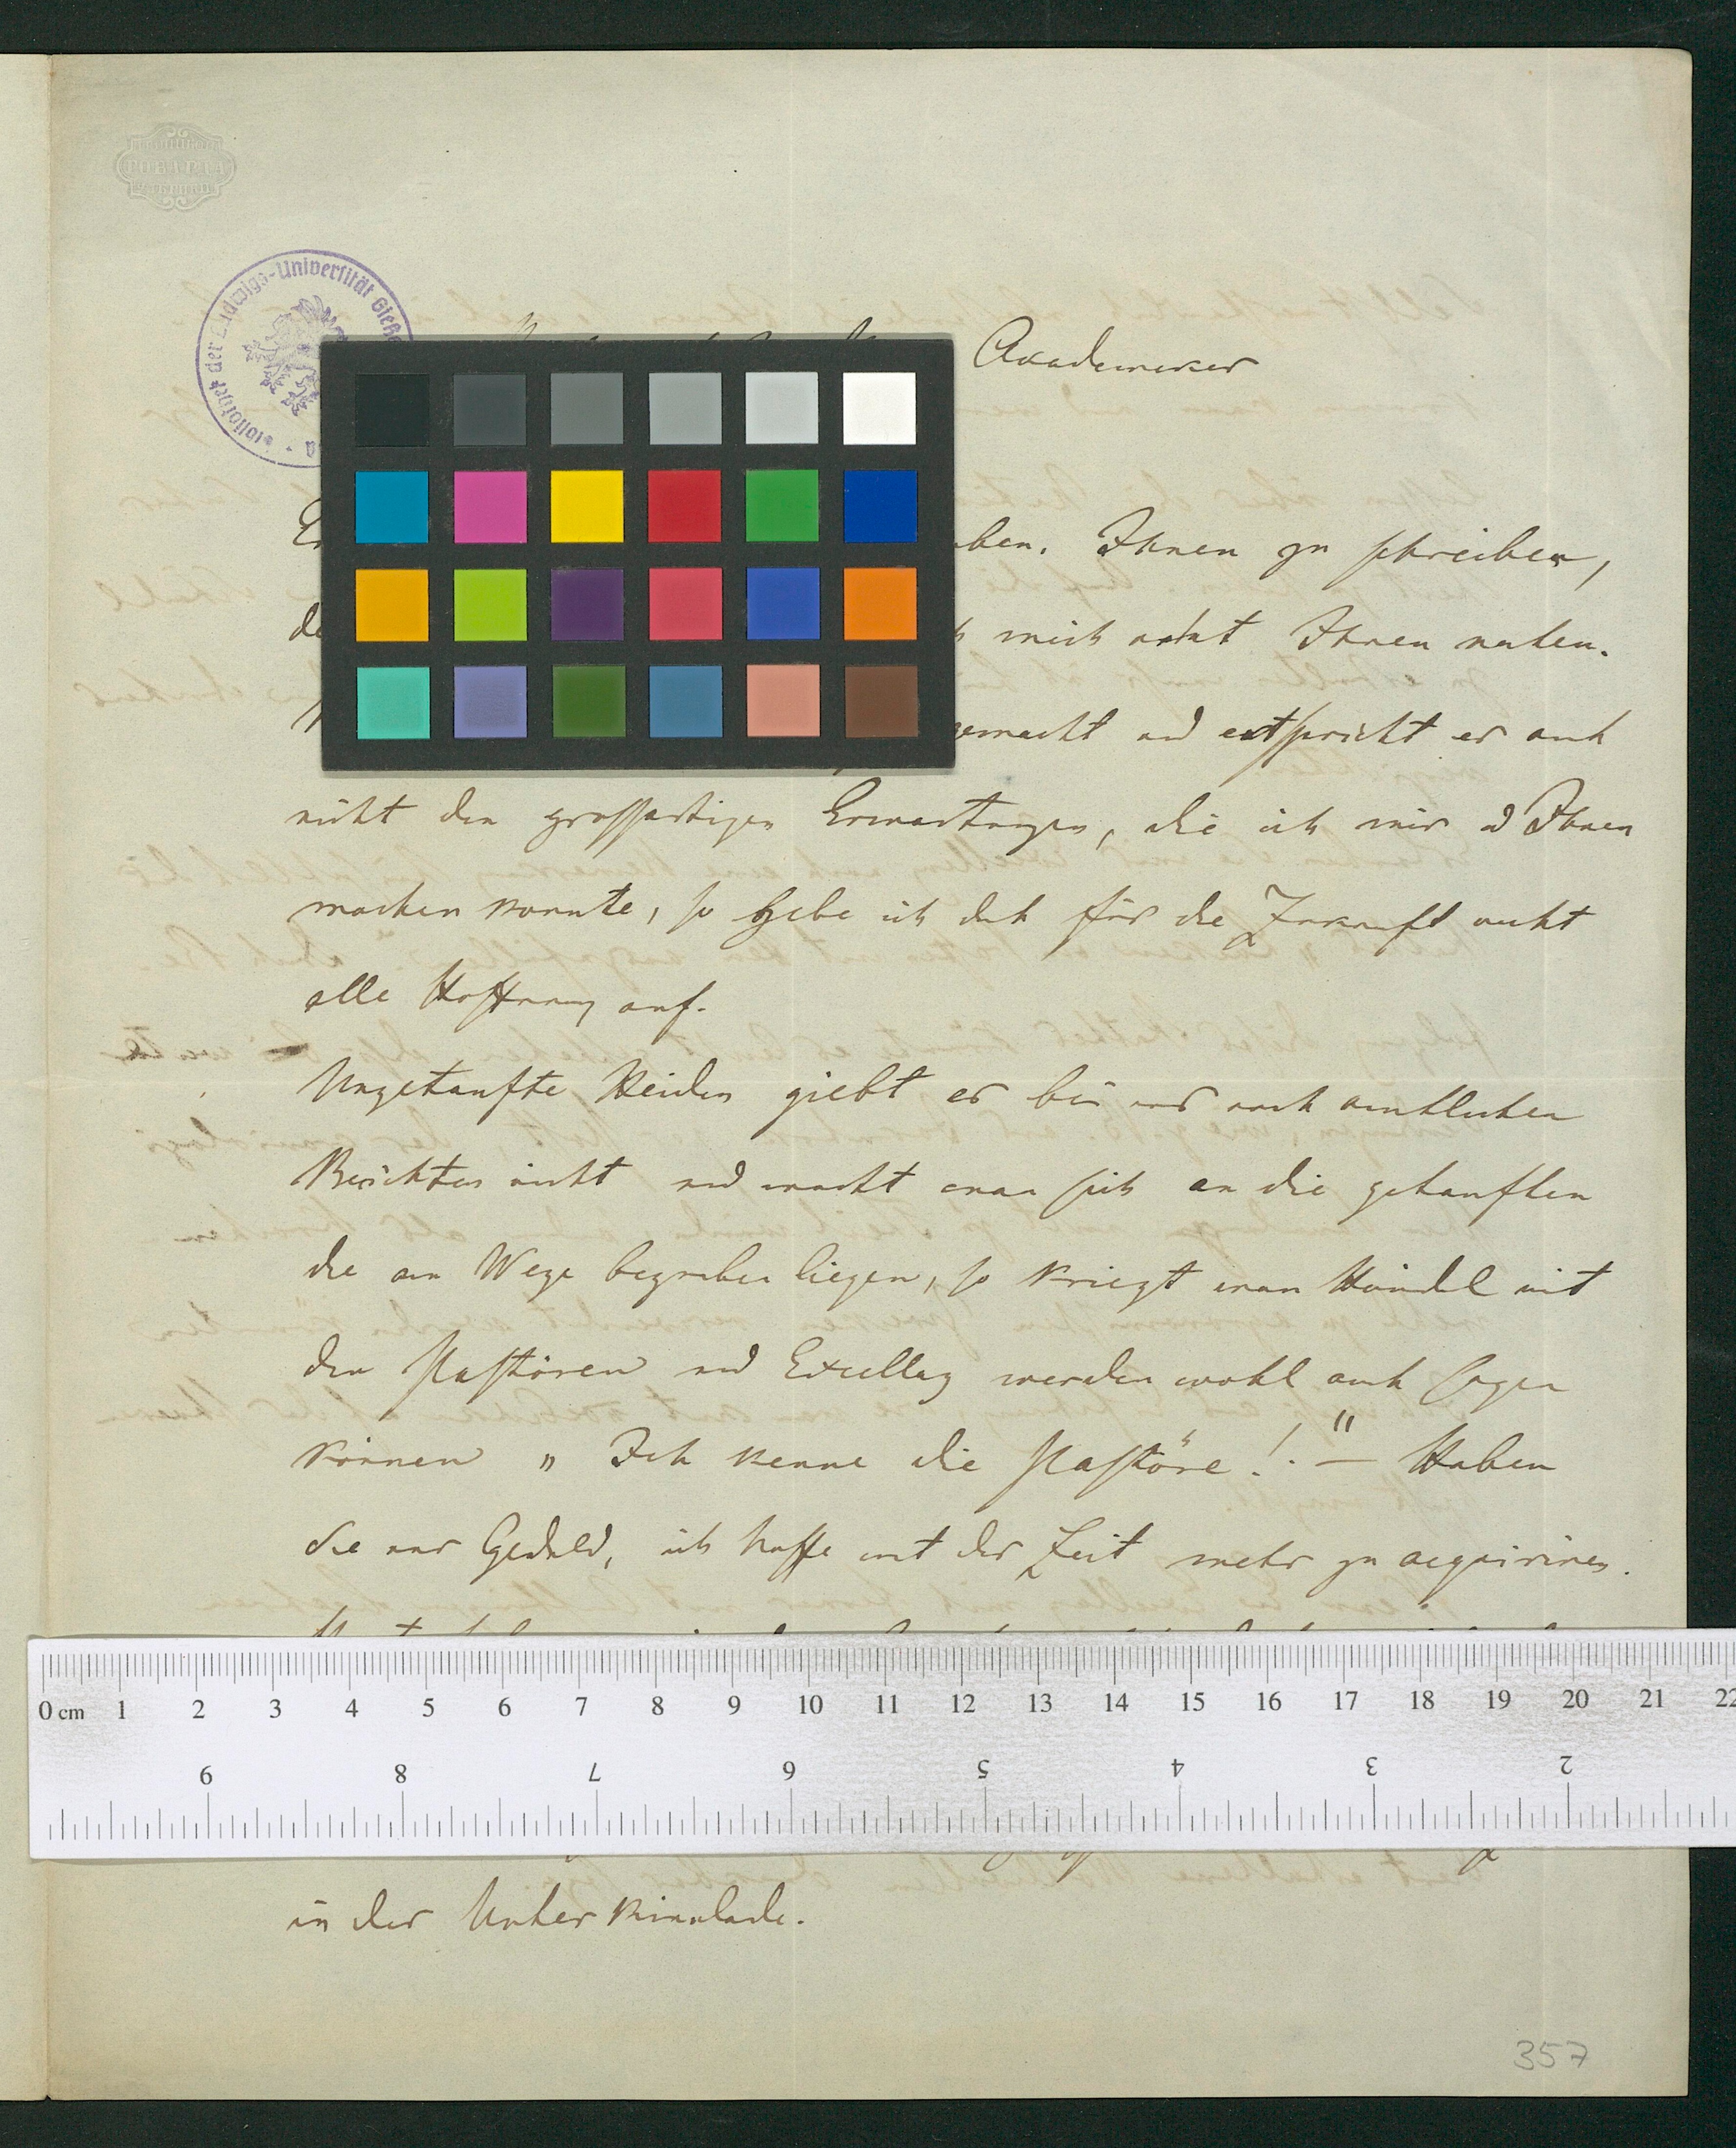 Bibliothek der Ludwigs-Universität Gieße
Akademiker
ben. Ihnen zu schreiben,
mich nebst Ihnen nahen.
gemacht und entspricht er auch
nicht den grossartigen Erwartungen, die ich mir u Ihnen
machen konnte, so gebe ich doch für die Zukunft nicht
alle Hoffnung auf.
Ungetaufte Heiden giebt es bei uns nach amtlichen
Berichten nicht und macht man sich an die getauften
die am Wege begraben liegen, so kriegt man Händel mit
den Pastören und Excellenz werden wohl auch sagen
können „Ich kenne die Pastöre!." — Haben
Sie nur Geduld, ich hoffe mit der Zeit mehr zu acquiriren.
0 cm 1 2 3 4 5 6 7 8 9 10 11 12 13 14 15 16 17 18 19 20 21 22
9 8 7 6 5 4 3 2
in der Unterkinnlade.
357